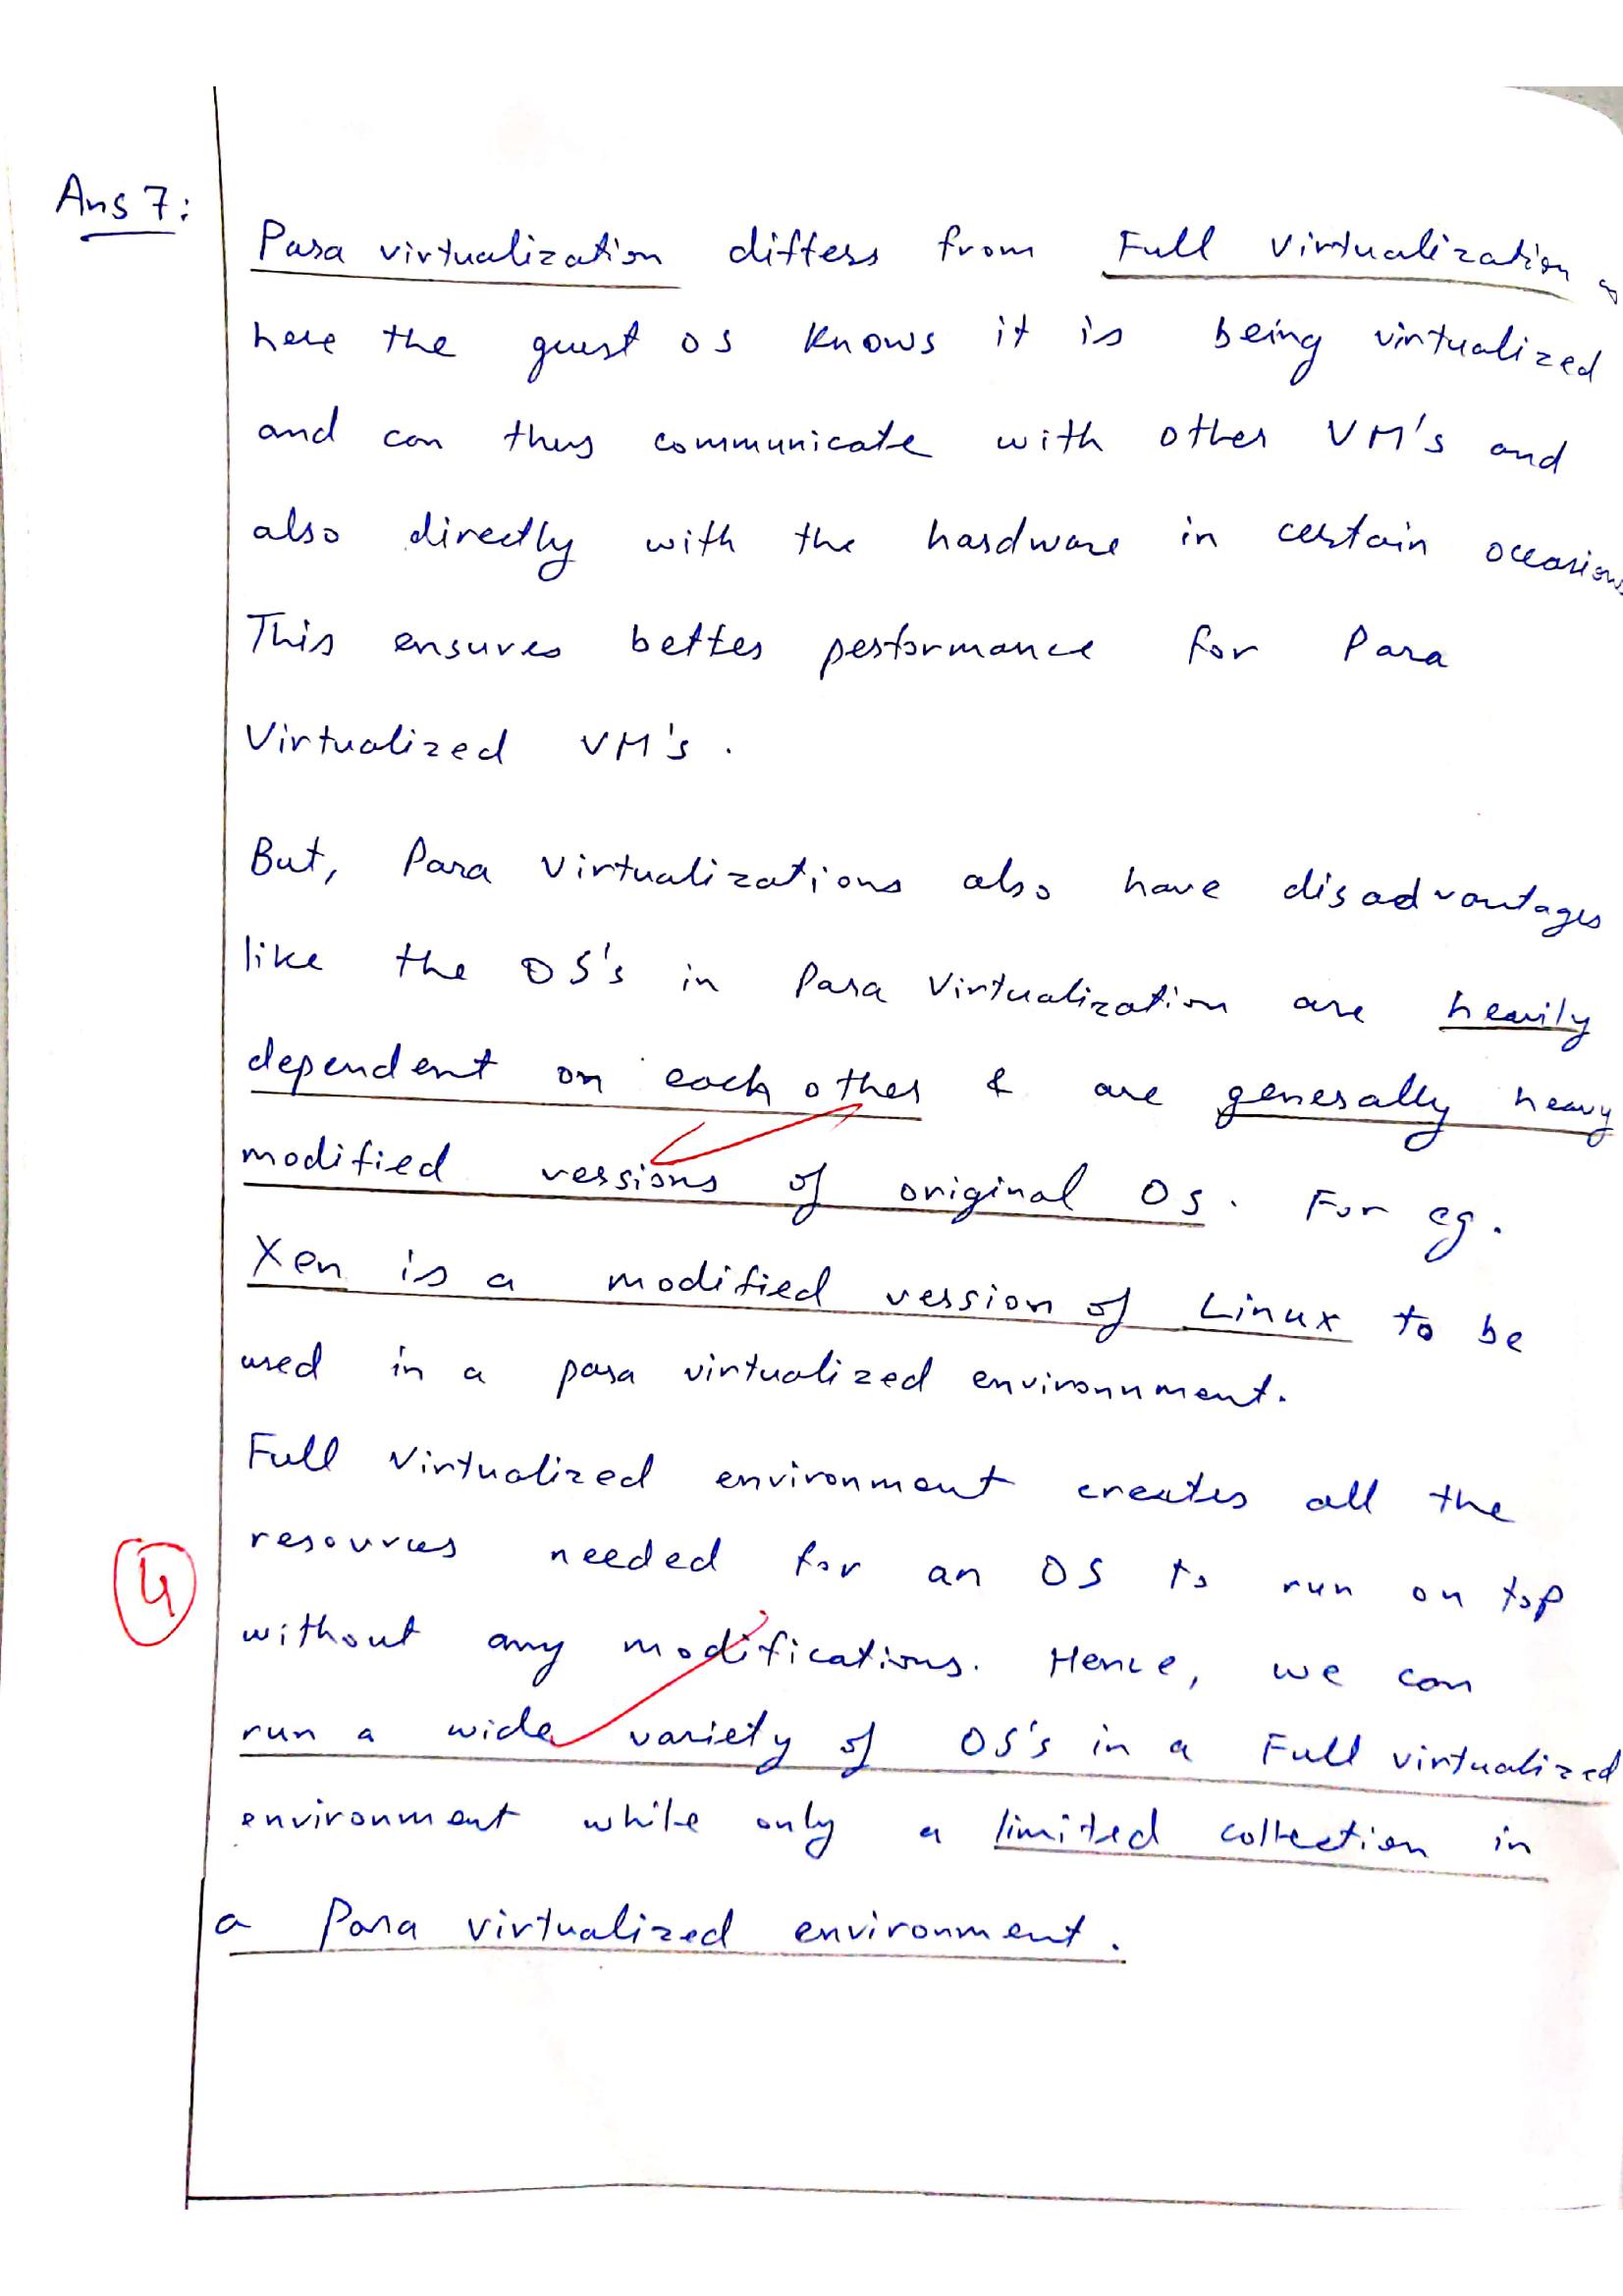 Ans 7:
Para virtualization differs from Full virtualization
here the guest OS knows it is being virtualized
and can thus communicate with other VM's and
also directly with the hardware in certain occasions
This ensures better performance for Para
Virtualized VM's.
But, Para Virtualizations also have disadvantages
like the OS's in Para Virtualization are heavily
dependent on each other & are generally heavy
modified versions of original OS. For eg.
Xen is a modified version of Linux to be
used in a para virtualized environnment.
Full Virtualized environment creates all the
resources needed for an OS to run on top
4
without any modifications. Hence, we can
run a wide variety of OS's in a Full virtualized
environment while only a limited collection in
a Para virtualized environment.